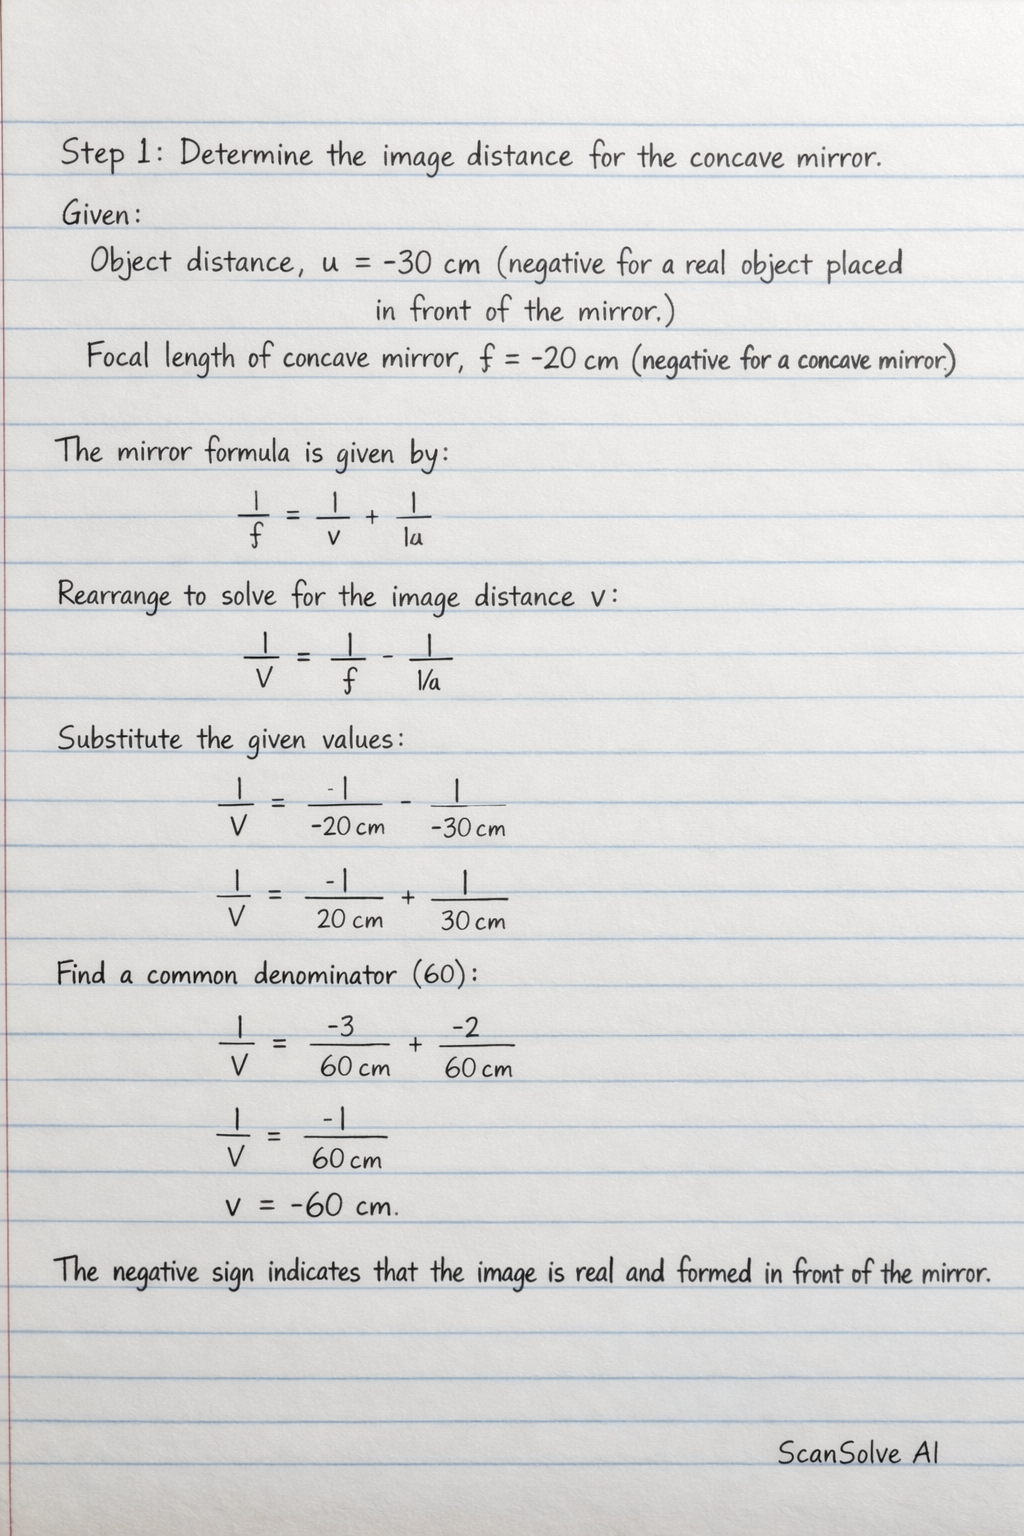 Step 1: Determine the image distance for the concave mirror.
Given:
Object distance, u = -30 cm (negative for a real object placed
in front of the mirror.)
Focal length of concave mirror, f = -20 cm (negative for a concave mirror.)
The mirror formula is given by:
1/f = 1/v + 1/1u
Rearrange to solve for the image distance v:
1/V = 1/f - 1/(1/a)
Substitute the given values:
1/V = -1/-20 cm - 1/-30 cm
1/V = -1/20 cm + 1/30 cm
Find a common denominator (60):
1/V = -3/60 cm + -2/60 cm
1/V = -1/60 cm
v = -60 cm.
The negative sign indicates that the image is real and formed in front of the mirror.
ScanSolve AI